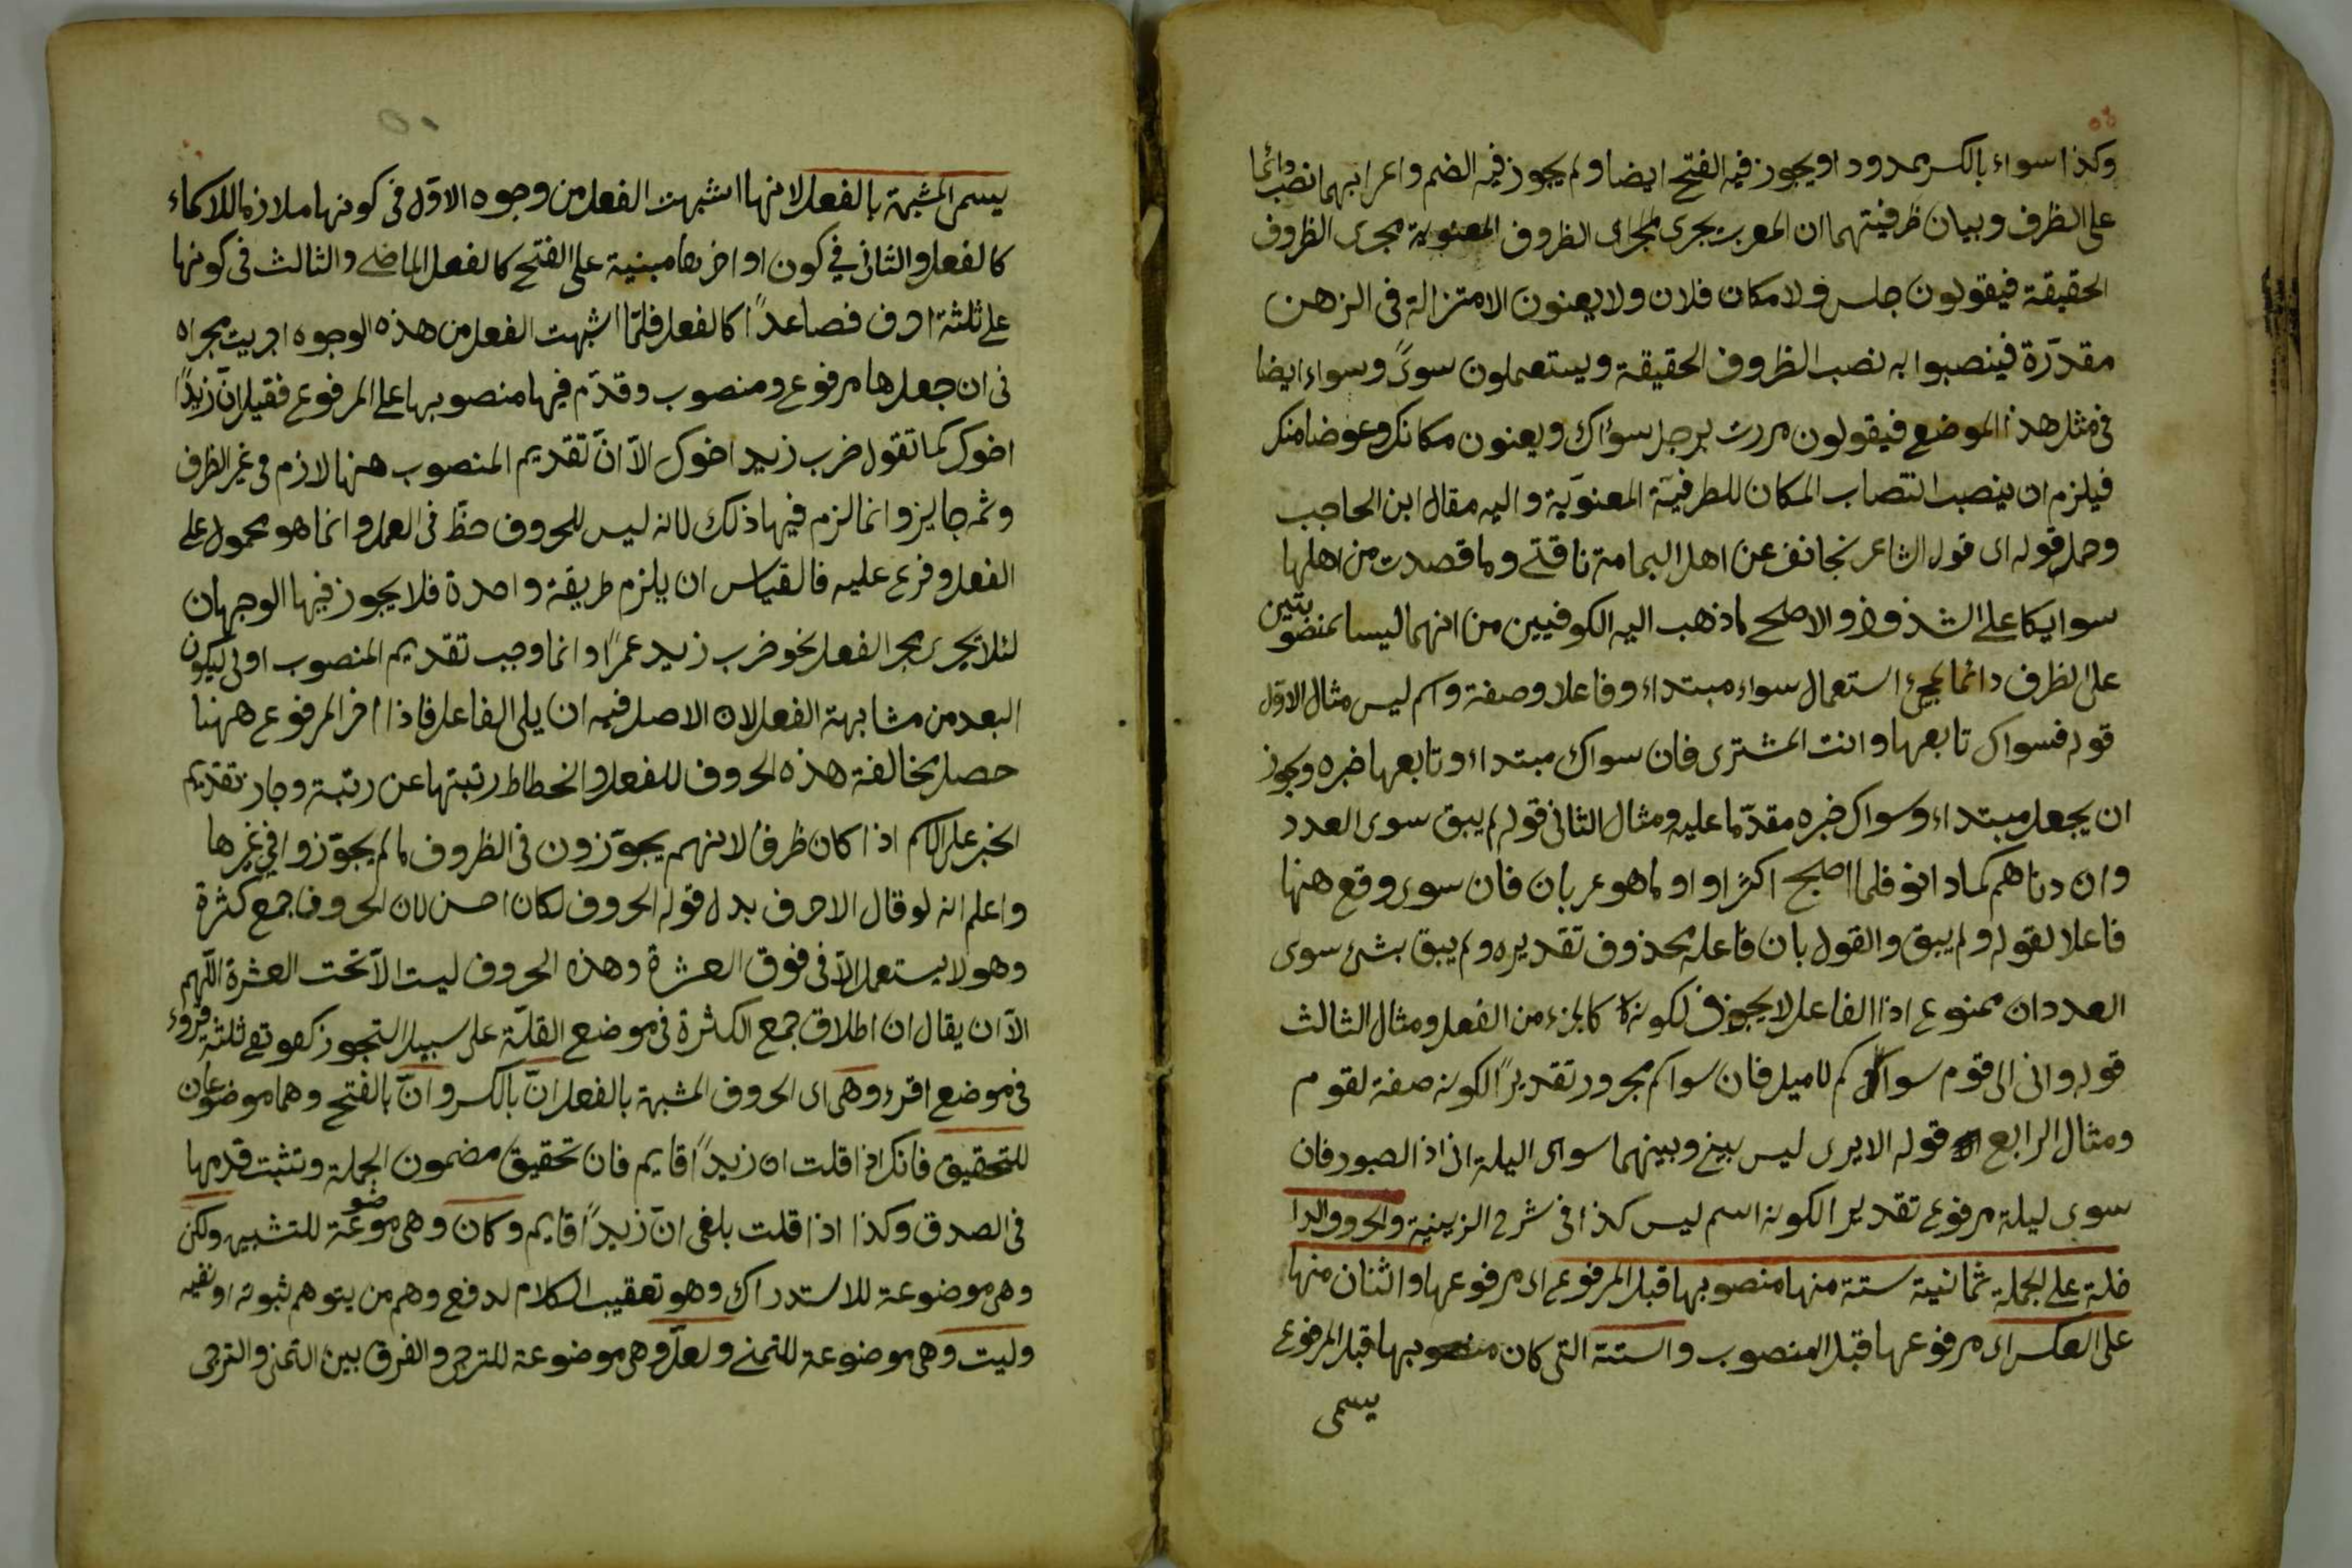 وكذا سواء بالكسر ممدودا ويجوز فيه الفتح ايضا ولم يجوز فيه الضم واعرابهما نصب دائما
على الظرف وبيان ظرفيتهما ان العرب يجرى مجرى الظروف المعنوية مجرى الظروف
الحقيقة فيقولون جلس فلان مكان فلان ولا يعنون الا منزلة فى الذهن
مقدرة فينصبوا به نصب الظروف الحقيقة ويستعملون سوىً وسواء ايضا
فى مثل هذا الموضع فيقولون مررت برجل سواك ويعنون مكانك وعوضا منك
فيلزم ان ينصب انتصاب المكان للظرفيّة المعنويّة واليه مقال ابن الحاجب
وحمل قوله اى قول الشاعر تجانف عن اهل اليمامة ناقتى وما قصدت من اهلها
سوايكا على الشذوذ والاصلح ما ذهب اليه الكوفيين من انهما ليسا بمنصوبتين
على الظرف دائما لمجئ استعمال سواء مبتداء وفاعلا وصفة واسم ليس مثال الاول
قوله فسواك تابعها وانت المشترى فان سواك مبتداء وتابعها خبره ويجوز
ان يجعل مبتداء وسواك خبره مقدّما عليه ومثال الثانى قوله لم يبق سوى العدد
وان دناهم كما دانو فلما اصبح اكثرا واو لما هو عريان فان سوى وقع هنها
فاعلا لقوله ولم يبق والقول بان فاعله محذوف تقديره ولم يبق بشئ سوى
العددان ممنوع اذا الفاعل لا يجوز لكونه كالجزء من الفعل ومثال الثالث
قوله وانى الى قوم سواكم لاميل فان سواكم مجرور تقديراً لكونه صفة لقوم
ومثال الرابع قوله الا يرى ليس بينى وبينهما سوى اليلة انى اذا الصبور فان
سوى ليلة مرفوع تقديرا لكونه اسم ليس كذا فى شرح الزينية والحروف الدا
خلة على الجملة ثمانية ستة منها منصوبها قبل المرفوع اى مرفوعها واثنان منها
على العكس اى مرفوعها قبل المنصوب والستة التى كان منصوبها قبل المرفوع
يسمى
يسمى المشبهة بالفعل لانها اشبهت الفعل من وجوه الاوّل فى كونها ملازما للاسماء
كالفعل والثانى فى كون اواخرها مبنية على الفتح كالفعل الماضى والثالث فى كونها
على ثلثة احرف فصاعداً كالفعل فلمّا اشبهت الفعل من هذه الوجوه اجريت مجراه
فى ان جعل لها مرفوع ومنصوب وقدّم فيها منصوبها على المرفوع فقيل انّ زيداً
اخوك كما تقول ضرب زيد اخوك الاّ انّ تقديم المنصوب هنها لازم فى غير الظرف
وثمه جايز وانما لزم فيها ذلك لانه ليس للحروف حظّ فى العمل وانما هو محمول على
الفعل وفرع عليه فالقياس ان يلزم طريقة واحدة فلا يجوز فيها الوجهان
لئلا يجرى مجرى الفعل نحو ضرب زيد عمراً وانما وجب تقديم المنصوب اولى ليكون
ابعد من مشابهة الفعل لان الاصل فيه ان يلى الفاعل فاذا اخر المرفوع ههنا
حصل مخالفة هذه الحروف للفعل وانحطاط رتبتها عن رتبة وجاز تقديم
الخبر على الاسم اذا كان ظرفا لانهم يجوّزون فى الظروف ما لم يجوّزوا فى غيرها
واعلم انه لو قال الاحرف بدل قوله الحروف لكان احسن لان الحروف جمع كثرة
وهو لا يستعمل الاّ فى فوق العشرة وهذه الحروف ليست الاّ تحت العشرة اللّهم
الاّ ان يقال ان اطلاق جمع الكثرة فى موضع القلّة على سبيل التجوز كقوله تع ثلثة قروء
فى موضع اقرء وهى اى الحروف المشبهة بالفعل انّ بالكسر وانّ بالفتح وهما موضوعان
للتحقيق فانك اذا قلت ان زيداً قايم فان تحقيق مضمون الجملة وتثبت قدمها
فى الصدق وكذا اذا قلت بلغنى انّ زيداً قايم وكان وهى موضوعة للتشبيه ولكن
وهى موضوعة للاستدراك وهو تعقيب الكلام لدفع وهم من يتوهم ثبوته او نفيه
وليت وهى موضوعة للتمنى ولعلّ وهى موضوعة للترجى والفرق بين التمنى والترجى